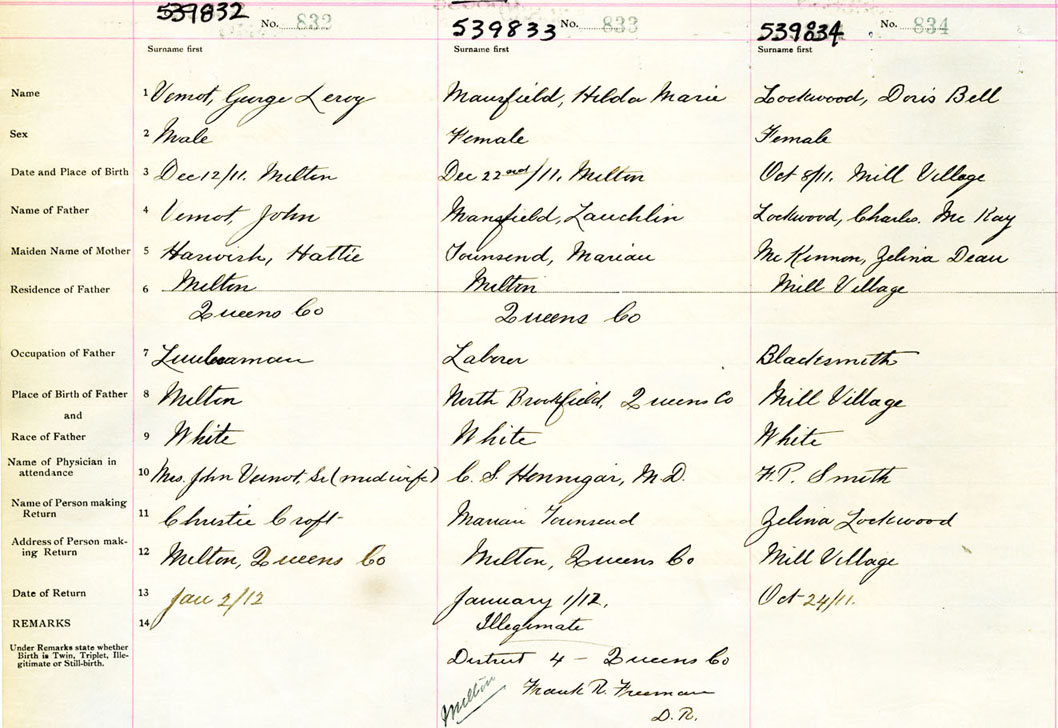 539832 No. 832 539833 No. 833 539834 No. 834
Surname first Surname first Surname first
Name 1 Vemot, George Leroy Mansfield, Hilda Marie Lockwood, Doris Bell
Sex 2 Male Female Female
Date and Place of Birth 3 Dec 12/11. Milton Dec 22nd/11. Milton Oct 8/11. Mill Village
Name of Father 4 Vemot, John Mansfield, Lauchlin Lockwood, Charles. McKay
Maiden Name of Mother 5 Harwish, Hattie Townsend, Marian McKinnon, Zelina Dean
Residence of Father 6 Milton Milton Mill Village
Queens Co Queens Co
Occupation of Father 7 Lumberman Laborer Blacksmith
Place of Birth of Father 8 Milton North Brookfield, Queens Co Mill Village
and
Race of Father 9 White White White
Name of Physician in
attendance 10 Mrs. John Vemot, Sr (midwife) C. S. Hennigar, M.D. Smith
Name of Person making
Return 11 Christie Croft Marian Townsend Zelina Lockwood
Address of Person mak-
ing Return 12 Milton, Queens Co Milton, Queens Co Mill Village
Date of Return 13 Jan 2/12 January 1/12. Oct 24/11.
REMARKS 14 Illegimate
Under Remarks state whether
Birth is Twin, Triplet, Ille-
gitimate or Still-birth.
District 4 - Queens Co
Milton Frank R. Freeman
D. R.